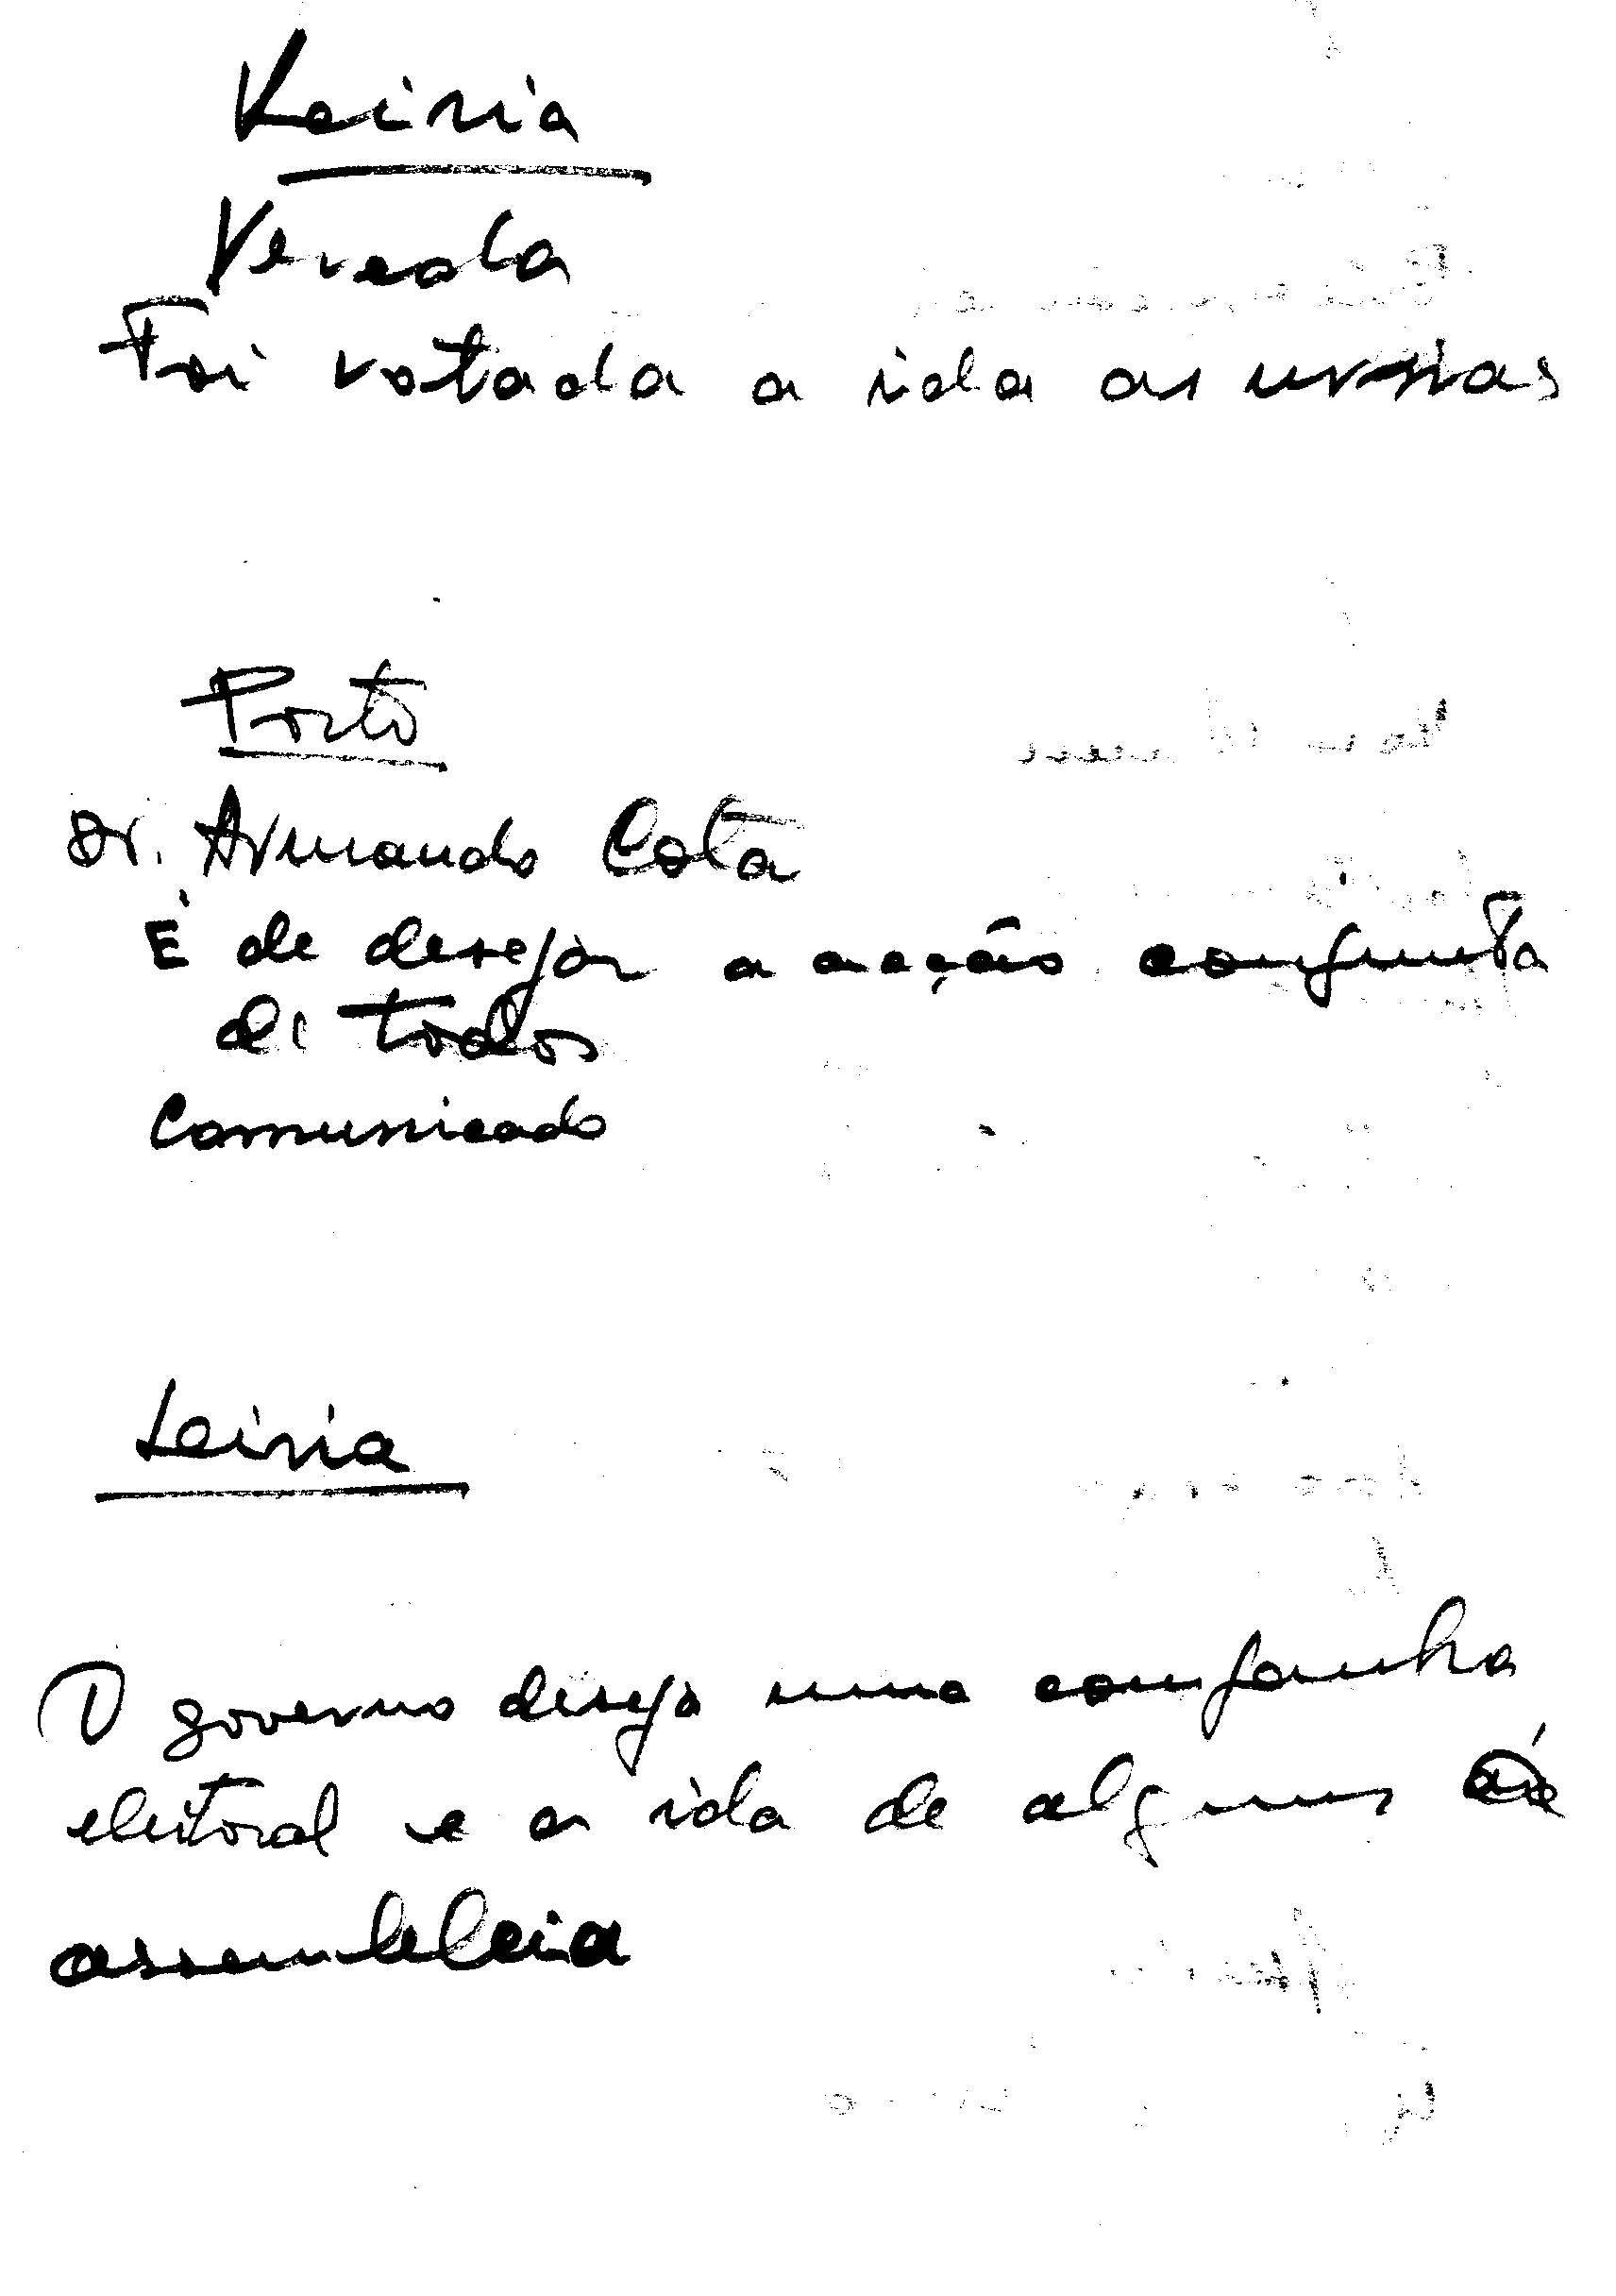 Leiria
Vereda
Foi votada a ida as urnas
Porto
Dr. Armando Cota
É de desejar a acção conjunta
de todos
Comunicado
Leiria
O governo deseja uma companha
eleitoral e a ida de alguns á
assembleia